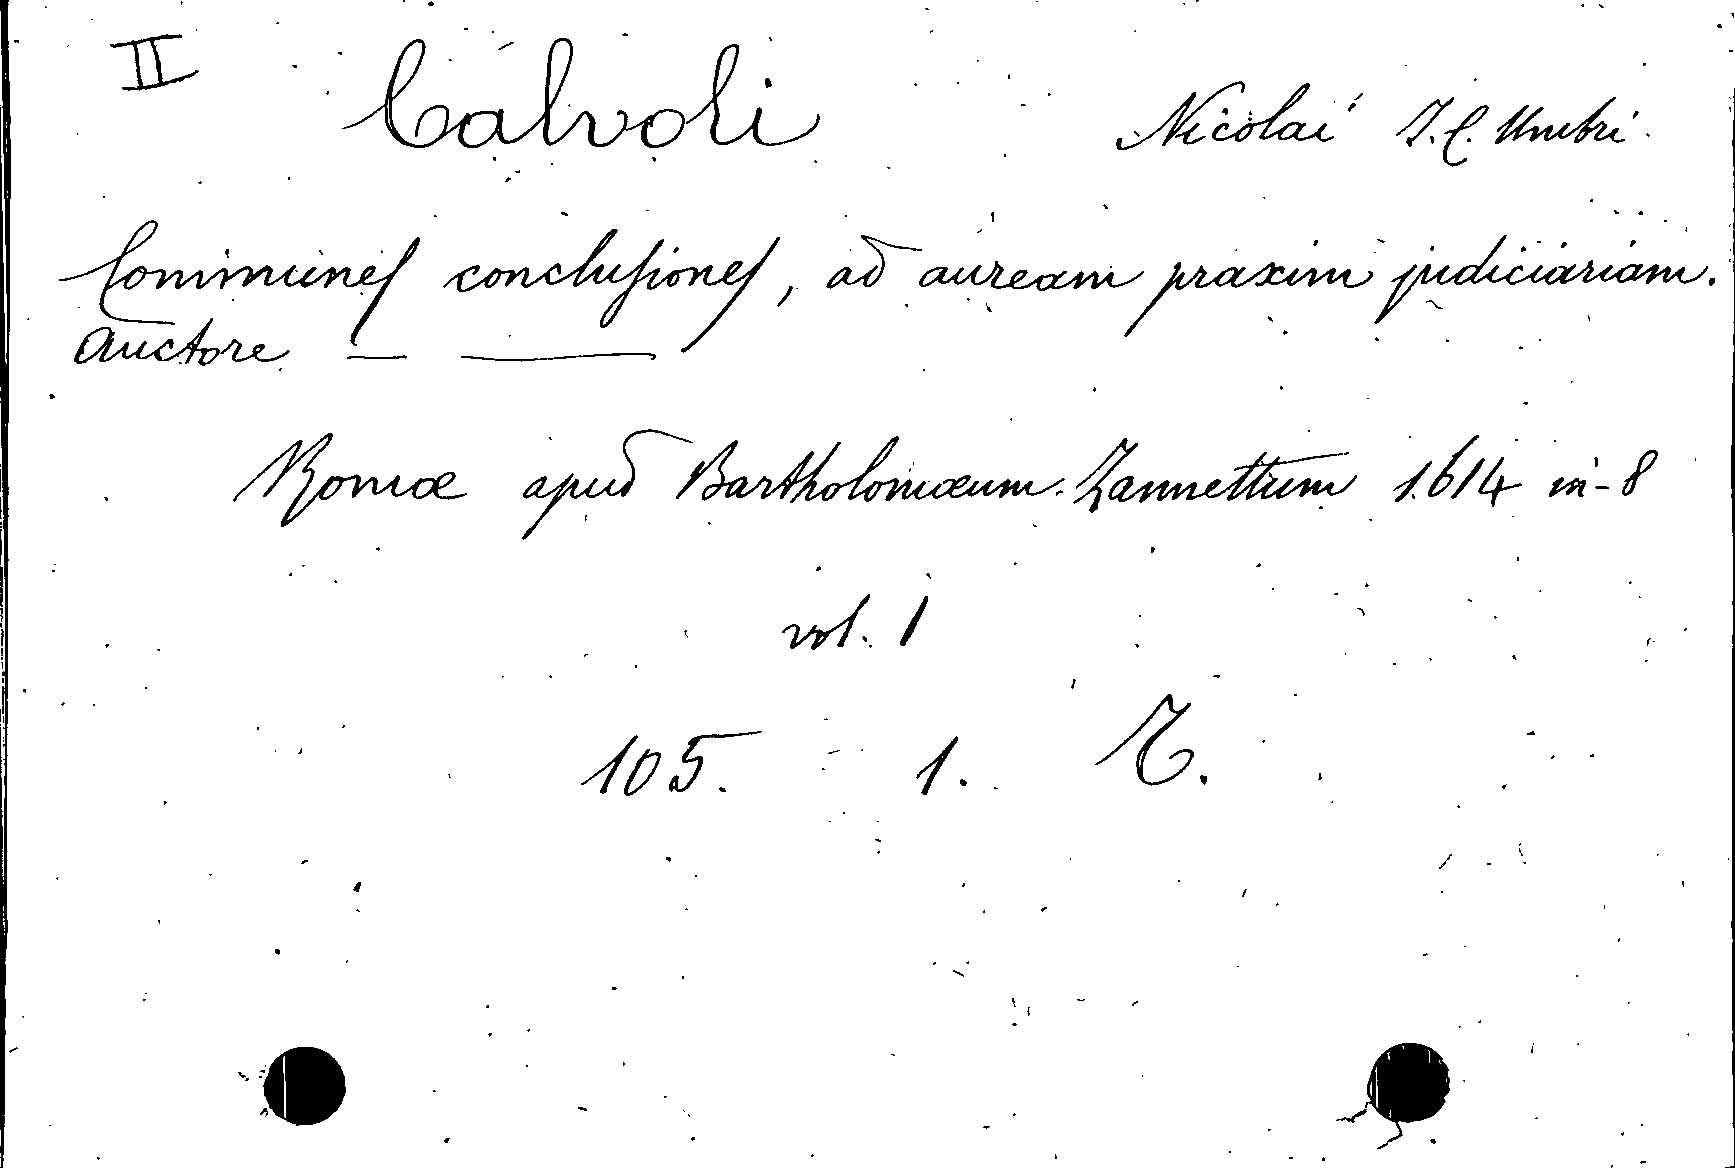 II Calvoli Nicolai J. C. Umbri.
Communes conclusiones, ad auream praxim judiciariam.
Auctore — ———
Romæ apud Bartholomæum Zannettum 1614 in-8
vol. 1
105. 1. T.